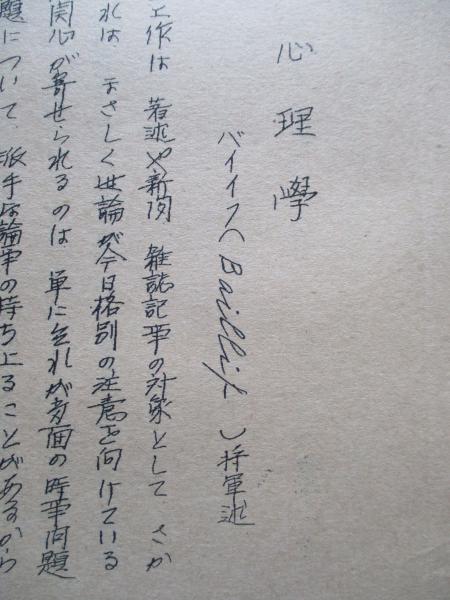 心理學
バイイフ(Baillif)将軍述
工作は 著述や新聞 雑誌記事の対象として さか
れは まさしく世論が今日格別の注意を向けている
関心が寄せられるのは 単にそれが当面の時事問題
題について、派手な論争の持ち上ることがあるから